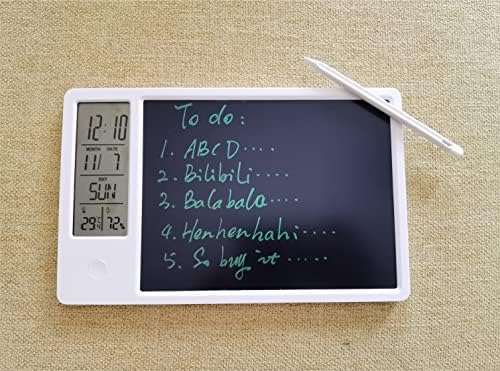 12:10
MONTH DATE
11/ 7
DAY
SUN
29°C 72%
To do:
1. ABCD....
2. Bilibili.....
3. Balabala.....
4. Henhenhahi.....
5. So buy it.....